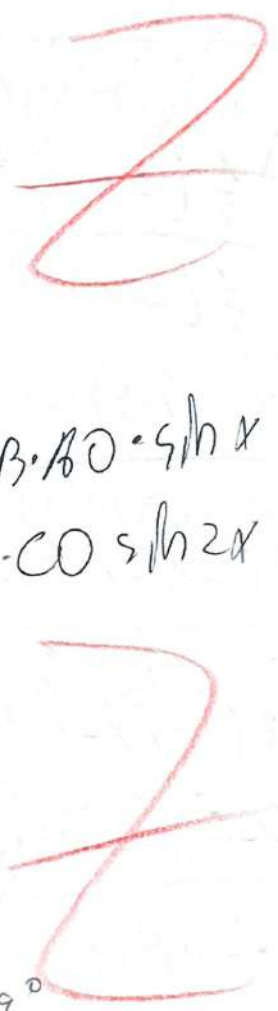 Z
B·AO·sin x
·CO sin 2x
Z
9°